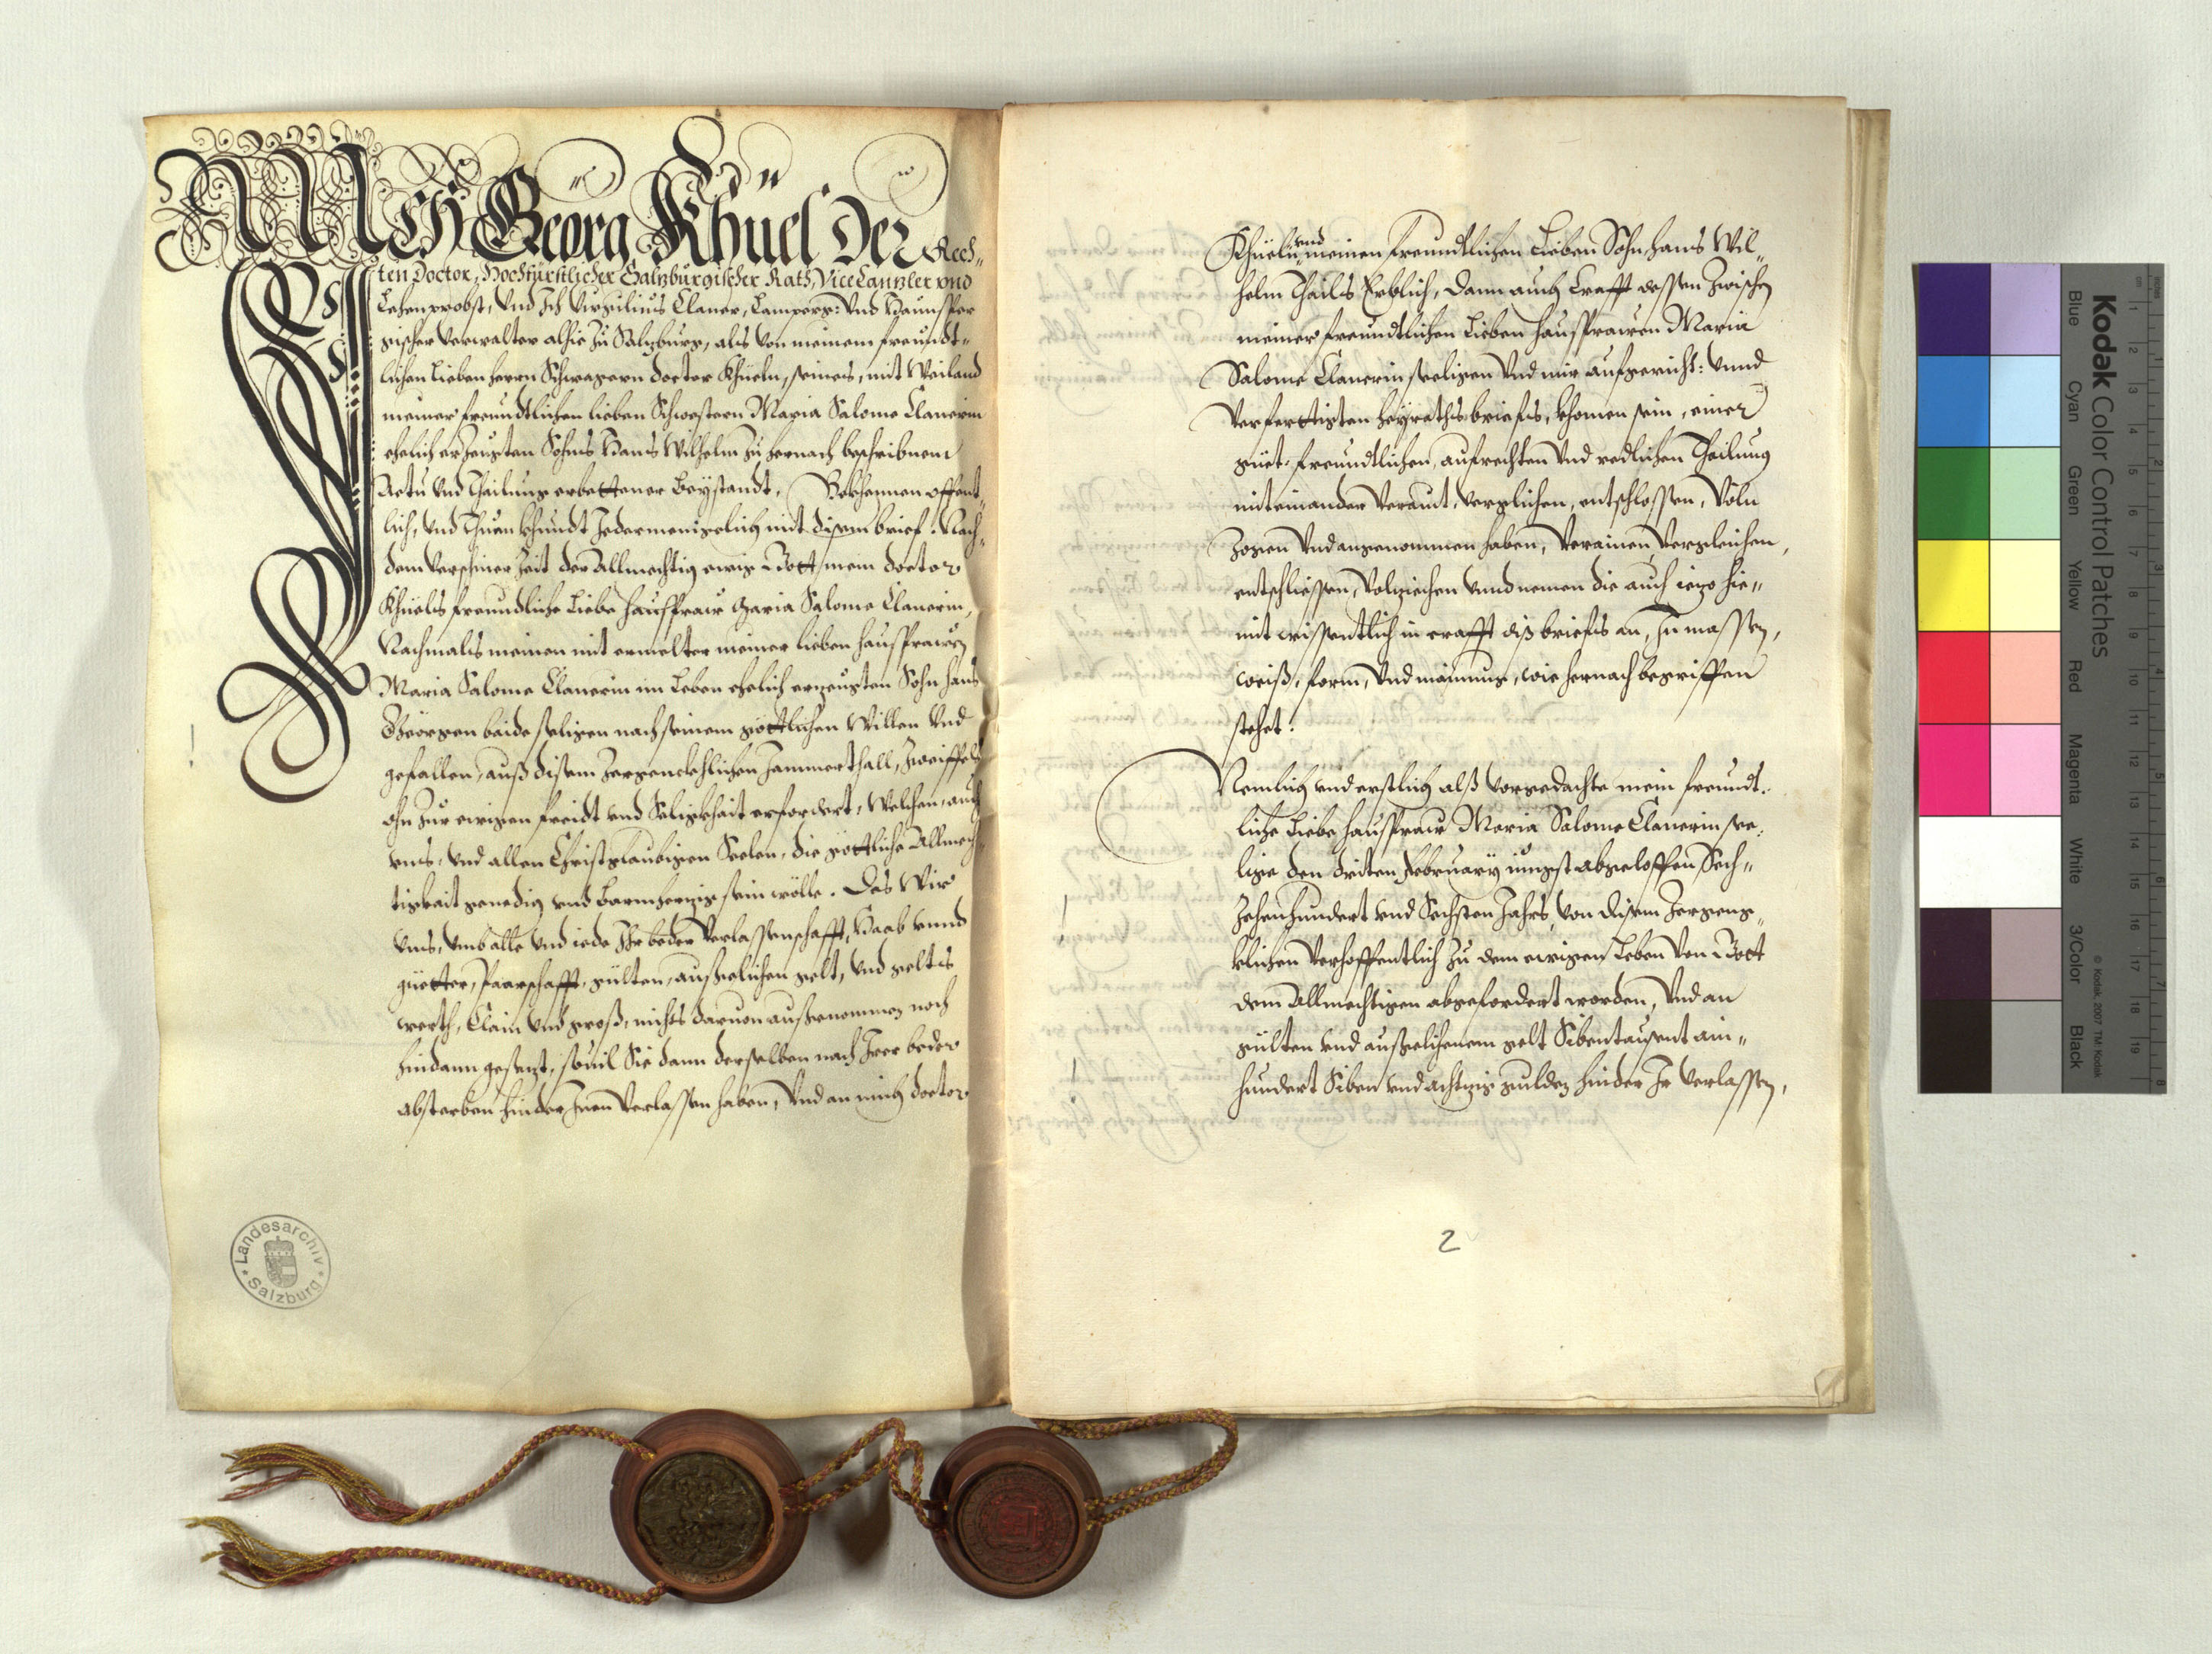 ICH Georg Khüel Der Rech„
ten Doctor, Hochfürstlicher Saltzburgischer Rath, ViceCantzler vnd
Lehenprobst, Vnd Ich Virgilius Claner, Lamperg: Vnd Haunsper
gischer Verwalter alhie zu Salzburg, als von meinem freundt„
lichen lieben herrn Schwagern doctor Khüeln, seines, mit Weiland
meiner freundtlichen lieben Schwestern Maria Salome Clanerin
ehelich erzeugten Sohns Hans Wilhelm zu hernach beschribnem
Actu vnd Thailung erbettener Beystandt, Bekhennen offent„
lich, vnd Thuen khundt Jedermenigelich mit disem brief. Nach„
dem Verschiner Zeit der Allmechtig ewig Gott, mein doctor
Khüels freundliche Liebe hausfraw Maria Salome Clanerin,
Nachmals meinen mit ermelter meiner lieben hausfrawen
Maria Salome Clanerin im Leben ehelich erzeugten Sohn hans
Geörgen baide seligen nach seinem göttlichen Willen Vnd
gefallen, auß disem zergencklichen Jammerthall, Zweiffels
ohn zur ewigen freidt vnd Seligkhait erfordert, Welchen, auch
vns, vnd allen Christglaubigen Seelen, die göttliche Allmech„
tigkait genedig vnd barmherzig sein wölle. Das Wir
vns, vmb alle vnd iede Ihr beder Verlassenschafft, Haab vnnd
güetter, Paarschafft, gülten, außgelichen gelt, vnd gelts
werth, Clain vnd groß, nichts daruon außgenommen noch
hindann gesezt, souil Sie dann derselben nach Irer beder
absterben hinder Inen Verlassen haben, Vnd an mich doctor
Khüeln vnd meinen freundtlichen Lieben Sohn hans Wil„
helm Thails Erblich, dann auch Crafft dessen zwischen
meiner freundtlichen lieben hausfrawen Maria
Salome Clanerin seeligen Vnd mir aufgericht: vnnd
Verfertigten heyrathsbriefs, khomen sein, einer
güet: freundtlichen, aufrechten Vnd redlichen Thailung
miteinander Veraint, Verglichen, entschlossen, Voln
zogen Vnd angenommen haben, Verainen Vergleichen,
entschliessen, Volziehen vnnd nemen die auch iezo hie„
mit wissentlich in crafft diß briefs an, In massen,
weiß, form, Vnd mainung, wie hernach begriffen
stehet.
Nemlich vnd erstlich alß Vorgedachte mein freundt„
liche Liebe hausfraw Maria Salome Clanerin see„
lige den driten February iüngst abgeloffen Sech„
zehenhundert vnd Sechsten Jahrs, von disem zergeng„
klichen Verhoffentlich zu dem ewigen Leben Von Gott
dem Allmechtigen abgefordert worden, Vnd an
gülten vnd außgelichenem gelt Sibentausent ain„
hundert Siben vnd achtzig gulden hinder Ir Verlassen,
2
Landesarchiv
Salzburg
Kodak Color Control Patches
Blue Cyan Green Yellow Red Magenta White 3/Color Black
© Kodak, 2007 TM: Kodak